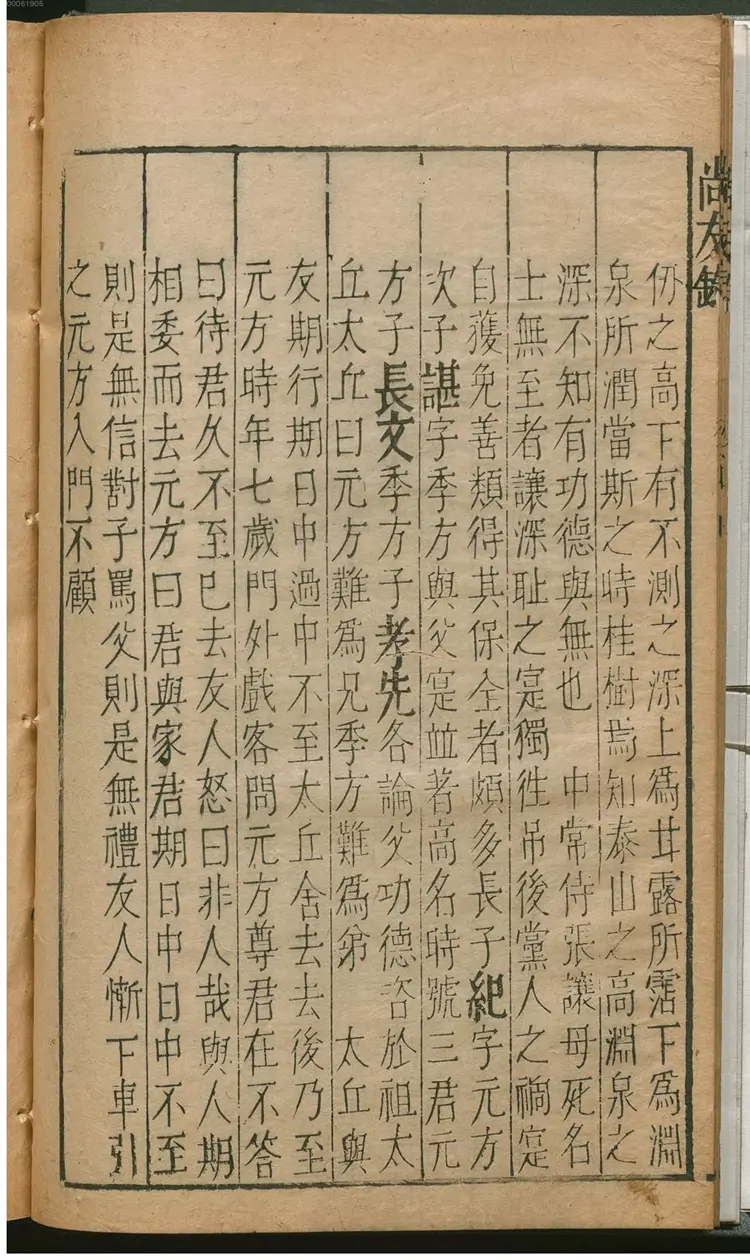 00061905
尚友錄
仞之高下有不測之深上爲甘露所霑下爲淵
泉所潤當斯之時桂樹焉知泰山之高淵泉之
深不知有功德與無也 中常侍張讓母死名
士無至者讓深耻之寔獨徃吊後黨人之禍寔
自獲免善類得其保全者頗多長子紀字元方
次子諶字季方與父寔並著高名時號三君元
方子長文季方子孝先各論父功德咨於祖太
丘太丘曰元方難爲兄季方難爲弟 太丘與
友期行期日中過中不至太丘舍去去後乃至
元方時年七歲門外戲客問元方尊君在不答
曰待君久不至已去友人怒曰非人哉與人期
相委而去元方曰君與家君期日中日中不至
則是無信對子罵父則是無禮友人慚下車引
之元方入門不顧